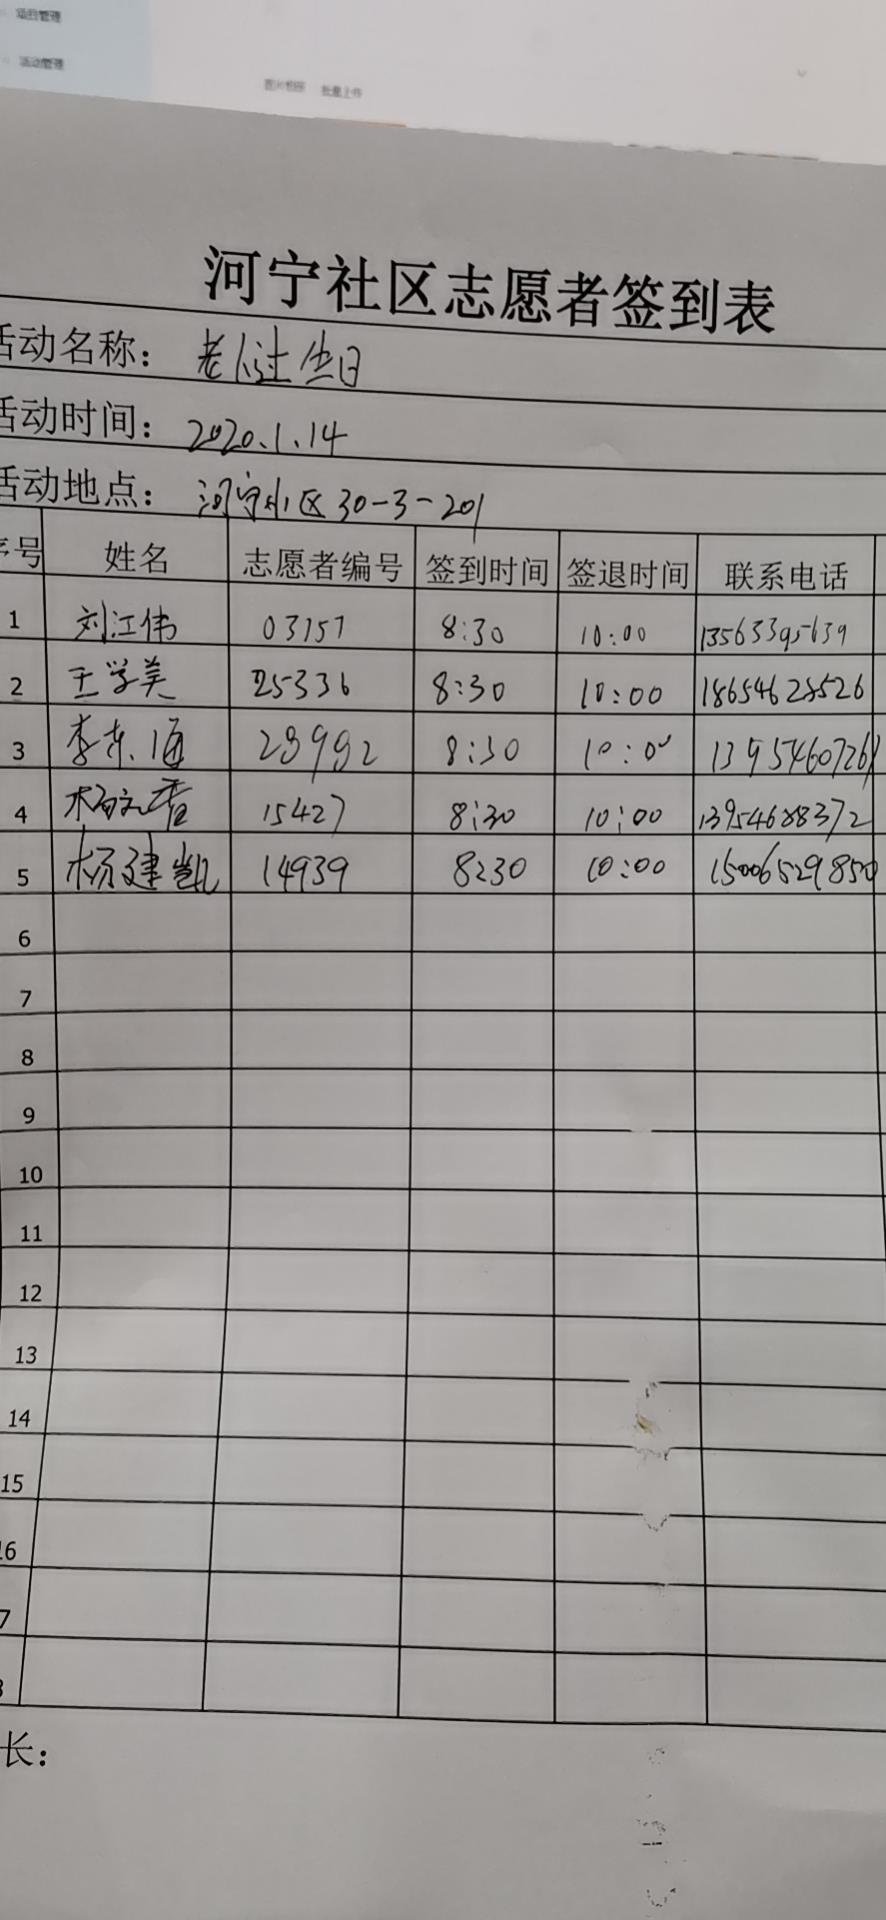 项目管理
活动管理
图片相册 批量上传
河宁社区志愿者签到表
活动名称： 老人过生日
活动时间： 2020.1.14
活动地点： 河宁小区30-3-201
序号 姓名 志愿者编号 签到时间 签退时间 联系电话
1 刘江伟 03157 8:30 10:00 13563395639
2 王学美 25336 8:30 10:00 18654628526
3 李东通 29992 8:30 10:00 13954607261
4 杨元香 15427 8:30 10:00 13954688372
5 杨建凯 14939 8:30 10:00 15006529850
6
7
8
9
10
11
12
13
14
15
16
7
8
长：